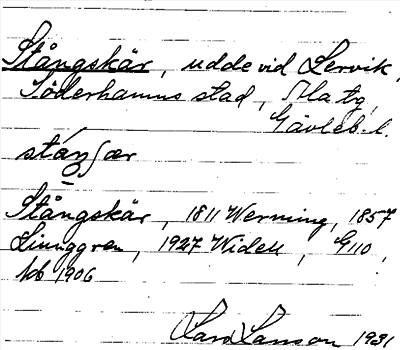 Stångskär, udde vid Lervik,
Söderhamns stad, Ala tg,
Gävleb. l.
Stångskär, 1811 Werming, 1857
Ljunggren, 1927 Widell, G110,
kb 1906
Lars Larsson 1931